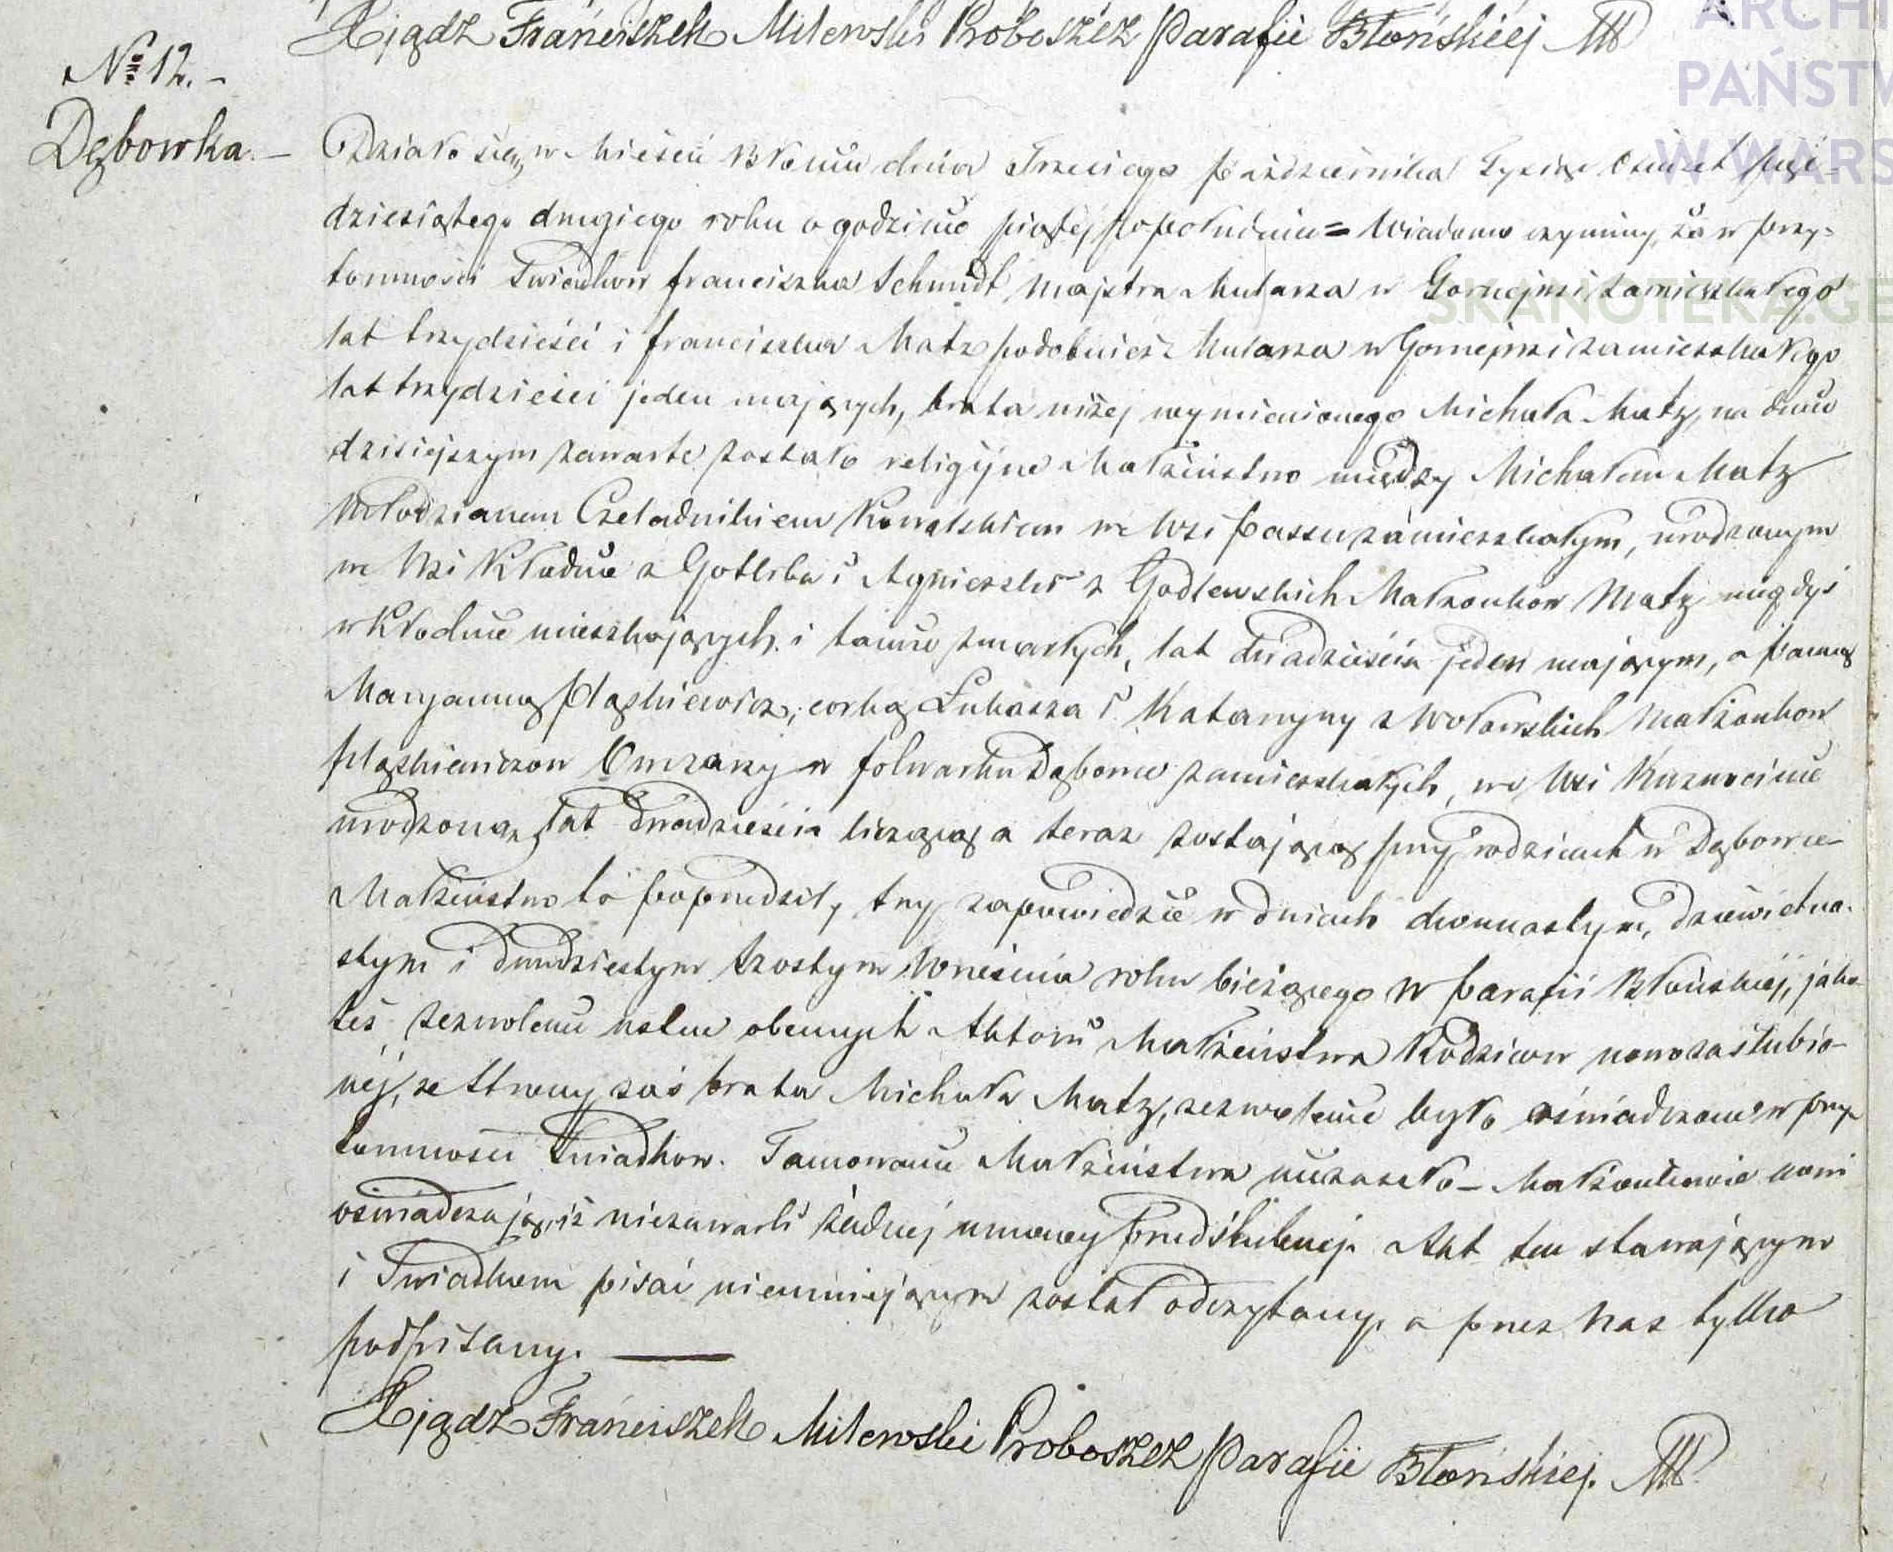 Xsiądz Franciszek Milewski Proboszcz Parafii Błońskiéj
ARCHI
PAŃSTW
W WARS
SKANOTEKA.GE
№ 12. –
Dębowka. –
Działo się w Mieście Błoniu dnia Trzeciego Października Tysiąc Ośmset pięć-
dziesiątego drugiego roku o godzinie piątéj popołudniu = Wiadomo czyniemy, że w przy-
tomności Świadków Franciszka Schmidt Majstra Mularza w zamieszkałego
lat trzydzieści i Franciszka Matz podobnież Mularza w zamieszkałego
lat trzydzieści jeden mających, brata niżéj wymienionego Michała Matz, na dniu
dzisiejszym zawarte zostało religijne Małżeństwo między Michałem Matz
Młodzianem Czeladnikiem Kowalskiem we Wsi Passu zamieszkałym, urodzonym
we Wsi Kłodnie z Gotliba i Agnieszki z Godlewskich Małżonków Matz niegdyś
w Kłodnie mieszkających i tamże zmarłych, lat dwadzieścia jeden mającym, a Panną
Maryanną Płaskiewicz, corką Łukasza i Katarzyny z Wołowskich Małżonków
Płaskiewiczow w folwarku Dębowce zamieszkałych, we Wsi
urodzoną, lat dwadzieścia liczącą a teraz zostającą przy rodzicach w Dębowce –
Małżeństwo to poprzedziły trzy zapowiedzie w dniach dwunastym, dziewietna-
stym i dwudziestym szostym Września roku bieżącego w Parafii Błońskiéj, jako
też zezwolenie ustne obecnych Aktowi Małżeństwa Rodziców nowozaślubio-
néj, ze strony zaś brata Michała Matz, zezwolenie było oświadczone w przy-
tomności Świadkow. Tamowanie Małżeństwa niezaszło – Małżonkowie nowi
oświadczają, iż niezawarli żadnéj umowy przedślubnéj. Akt ten stawającym
i Świadkom pisać nieumiejącym został odczytany, a przez Nas tylko
podpisany.
Xsiądz Franciszek Milewski Proboszcz Parafii Błońskiej.